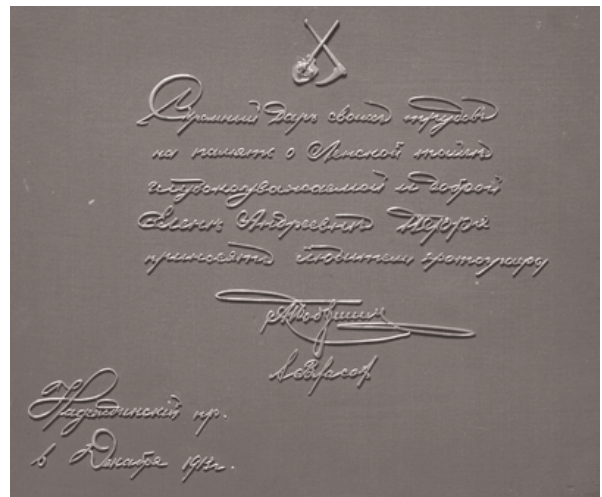 Скромный Даръ своихъ трудовъ
на память о Ленской тайгѣ
глубокоуважаемой и доброй
Еленѣ Андреевнѣ
приносятъ любители фотографы
Надеждинскій пр.
в Декабря 1913г.